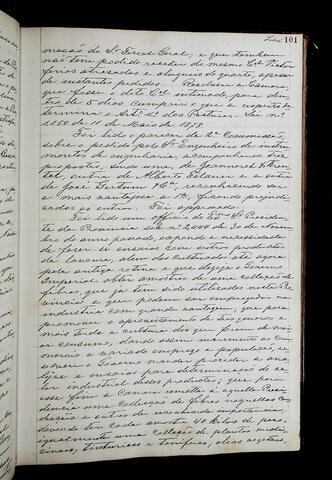 101
mação do Sr. Fiscal Geral, e que tambem
não tem podido receber do mesmo Cel Victor
ferias atrasadas e alugueis do quarto, apesar
de instantes pedidos. Resolveu a Camara
que fosse o dito Cel intimado, para den-
tro de 5 dias cumprir o que a respeito de-
termina o Artº das Posturas Lei nº
1130 de 11 de Maio de 1875.
Foi lido o parecer da Commissão,
sobre o pedido pelo Sr. Engenheiro de instru-
mentos de engenharia, acompanhando tres
propostas, sendo uma de
outra de Alberto e a outra
de José & Cª, reconhecendo ser
a mais vantajosa a 1ª, ficando prejudi-
cadas as outras. Foi approvado.
Foi lido um officio do Exmo Sr. Presiden-
te da Provincia sob nº 2,444 de 30 de Novem-
bro do anno passado, expondo a necessidade
de fazer de ensaios com outros productos
da lavoura, alem dos cultivados até agora
pela antiga rotina e que deseja o Governo
Imperial obter amostra de uma collecção de
fibras, que já tem sido utilisadas nesta Pro-
vincia e que podem ser empregadas na
industria com grande vantagem; que para
promover o aproveitamento de seus generos e
mais tarde a cultura dos que forem de mai-
or consumo, dando assim incremento ao Com-
mercio e variado emprego a população, re-
solveu o Governo mandar proceder a ana-
lyse e ensaios para determinação do va-
lor industrial desses productos; que para
esse fim a Camara remetta á aquella Presi-
dencia uma collecção de fibras naquellas Con-
dições e outras de reconhecida importancia,
devendo ser cada amostra 40 kilos de peso,
igualmente uma collecção de plantas medi-
cinaes, tinturiaes e teniferas, oleos vegetaes,